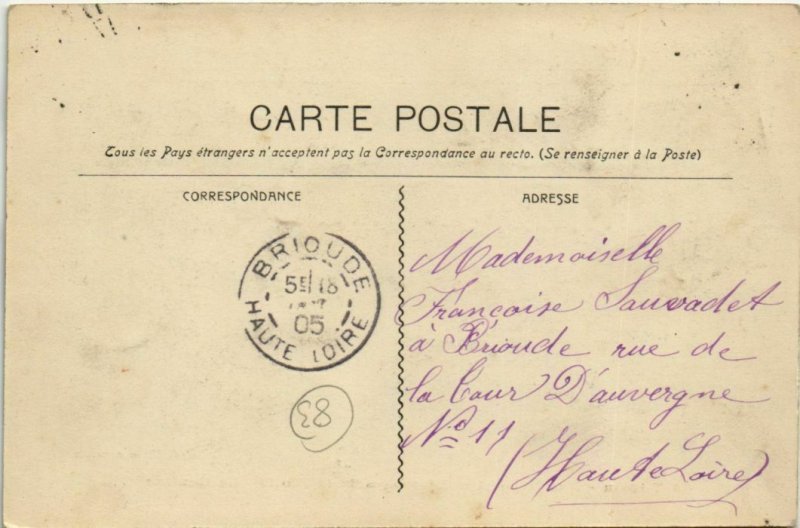 CARTE POSTALE
Tous les Pays étrangers n'acceptent pas la Correspondance au recto. (Se renseigner à la Poste)
CORRESPONDANCE
ADRESSE
BRIOUDE
5E 18
05
HAUTE LOIRE
83
Mademoiselle
Françoise Sauvadet
à Brioude rue de
la Cour D'auvergne
No 11
(Haute Loire)